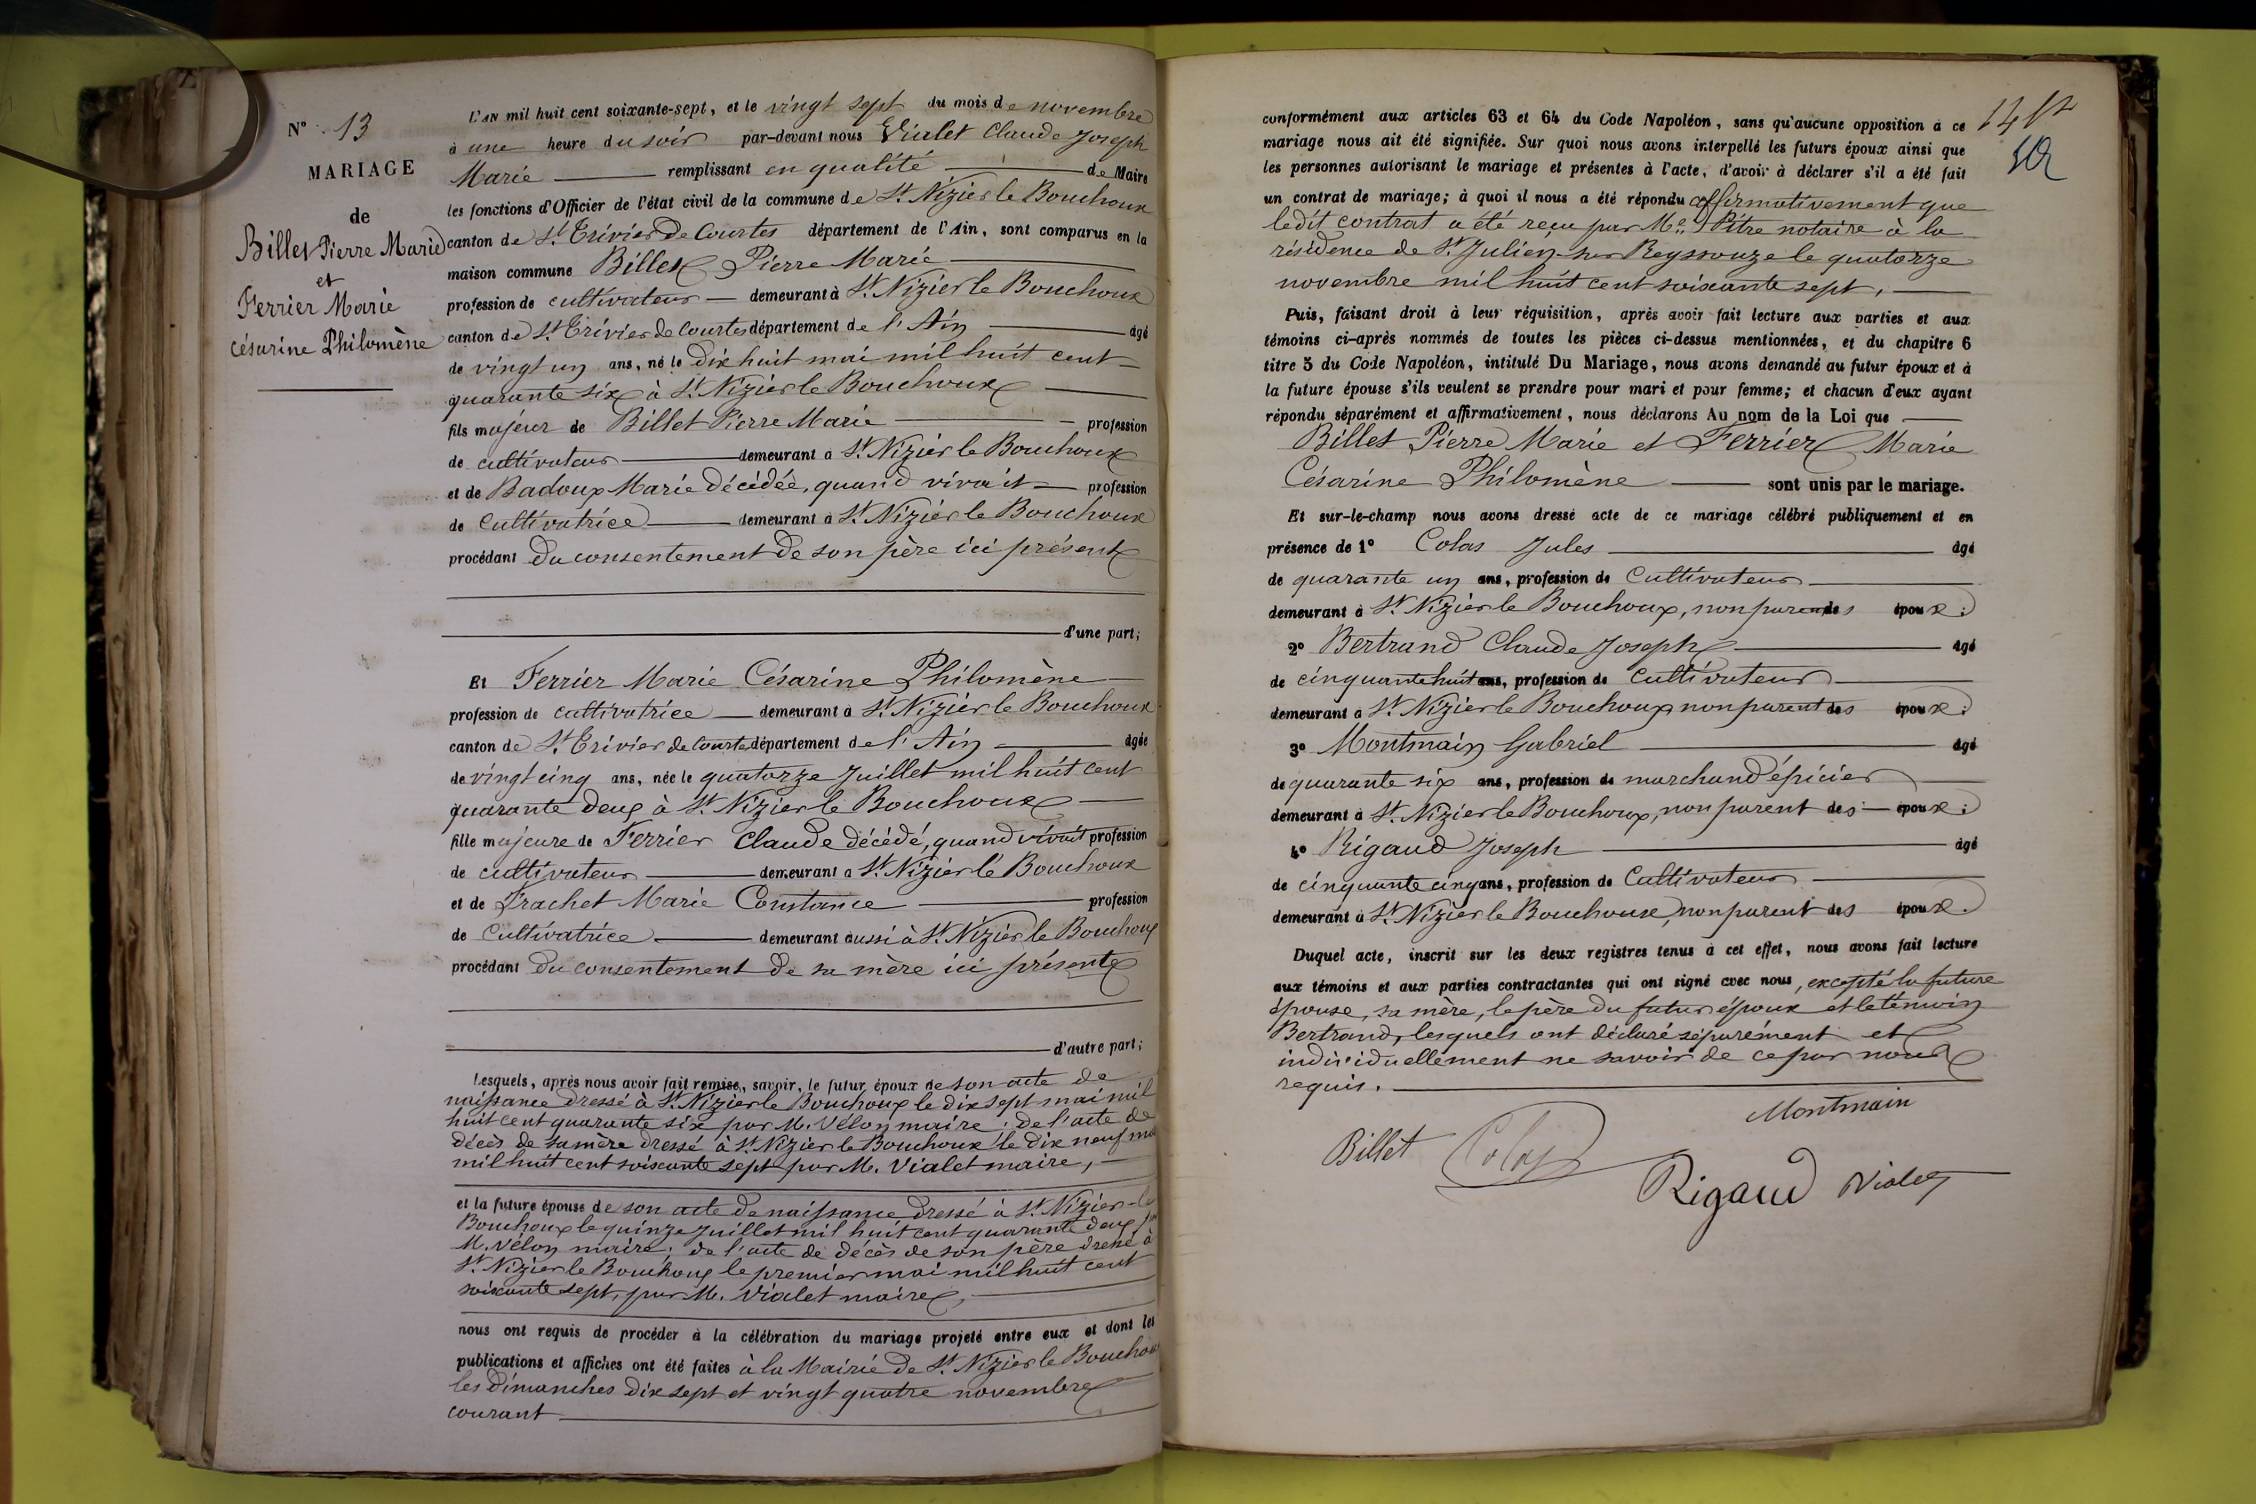 N° 13
MARIAGE
de
Billet Pierre Marie
et
Ferrier Marie
Césarine Philomène
L'AN mil huit cent soixante-sept, et le vingt sept du mois de novembre
à une heure du soir par-devant nous Vialet Claude Joseph
Marie remplissant en qualité de Maire
les fonctions d'Officier de l'état civil de la commune de St Nizier le Bouchoux
canton de St Trivier de Courtes département de l'Ain, sont comparus en la
maison commune Billet Pierre Marie
profession de cultivateur demeurant à St Nizier le Bouchoux
canton de St Trivier de Courtes département de l'Ain âgé
de vingt un ans, né le dix huit mai mil huit cent
quarante six à St Nizier le Bouchoux
fils majeur de Billet Pierre Marie profession
de cultivateur demeurant à St Nizier le Bouchoux
et de Badoux Marie décédée, quand vivait profession
de cultivatrice demeurant à St Nizier le Bouchoux
procédant du consentement de son père ici présent
d'une part;
Et Ferrier Marie Césarine Philomène
profession de cultivatrice demeurant à St Nizier le Bouchoux
canton de St Trivier de Courtes département de l'Ain âgée
de vingt cinq ans, née le quatorze Juillet mil huit cent
quarante deux à St Nizier le Bouchoux
fille majeure de Ferrier Claude décédé, quand vivait profession
de cultivateur demeurant à St Nizier le Bouchoux
et de Frachet Marie Constance profession
de cultivatrice demeurant aussi à St Nizier le Bouchoux
procédant du consentement de sa mère ici présente
d'autre part;
Lesquels, après nous avoir fait remise, savoir, le futur époux de son acte de
naissance dressé à St Nizier le Bouchoux le dix sept mai mil
huit cent quarante six par M. Vélon maire; de l'acte de
décès de sa mère dressé à St Nizier le Bouchoux le dix neuf mai
mil huit cent soixante sept par M. Vialet maire,
et la future épouse de son acte de naissance dressé à St Nizier-le
Bouchoux le quinze Juillet mil huit cent quarante deux par
M. Vélon maire; de l'acte de décès de son père dressé à
St Nizier le Bouchoux le premier mai mil huit cent
soixante sept, par M. Vialet maire,
nous ont requis de procéder à la célébration du mariage projeté entre eux et dont les
publications et affiches ont été faites à la Mairie de St Nizier le Bouchoux
les dimanches dix sept et vingt quatre novembre
courant
conformément aux articles 63 et 64 du Code Napoléon, sans qu'aucune opposition à ce
mariage nous ait été signifiée. Sur quoi nous avons interpellé les futurs époux ainsi que
les personnes autorisant le mariage et présentes à l'acte, d'avoir à déclarer s'il a été fait
un contrat de mariage; à quoi il nous a été répondu affirmativement que
le dit contrat a été reçu par Me Pitre notaire à la
résidence de St Julien-sur Reyssouze le quatorze
novembre mil huit cent soixante sept,
Puis, faisant droit à leur réquisition, après avoir fait lecture aux parties et aux
témoins ci-après nommés de toutes les pièces ci-dessus mentionnées, et du chapitre 6
titre 5 du Code Napoléon, intitulé Du Mariage, nous avons demandé au futur époux et à
la future épouse s'ils veulent se prendre pour mari et pour femme; et chacun d'eux ayant
répondu séparément et affirmativement, nous déclarons Au nom de la Loi que
Billet Pierre Marie et Ferrier Marie
Césarine Philomène sont unis par le mariage.
Et sur-le-champ nous avons dressé acte de ce mariage célébré publiquement et en
présence de 1° Colas Jules âgé
de quarante un ans, profession de Cultivateur
demeurant à St Nizier le Bouchoux, non parent des époux;
2° Bertrand Claude Joseph âgé
de cinquante huit ans, profession de Cultivateur
demeurant à St Nizier le Bouchoux non parent des époux;
3° Montmain Gabriel âgé
de quarante six ans, profession de marchand épicier
demeurant à St Nizier le Bouchoux, non parent des époux;
4° Rigaud Joseph âgé
de cinquante cinq ans, profession de Cultivateur
demeurant à St Nizier le Bouchoux, non parent des époux.
Duquel acte, inscrit sur les deux registres tenus à cet effet, nous avons fait lecture
aux témoins et aux parties contractantes qui ont signé avec nous, excepté la future
épouse, sa mère, le père du futur époux et le témoin
Bertrand, lesquels ont déclaré séparément et
individuellement ne savoir de ce par nous
requis.
Montmain
Billet Colas
Rigaud Vialet